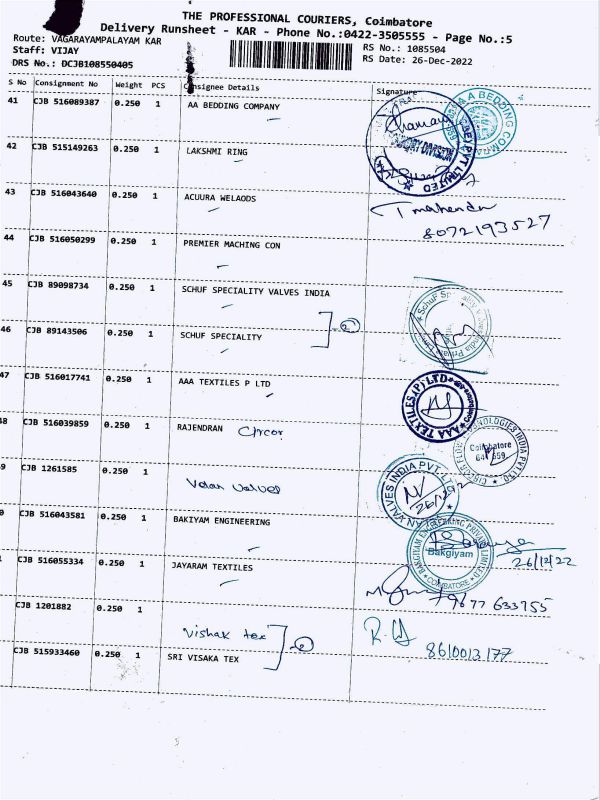 THE PROFESSIONAL COURIERS, Coimbatore
Delivery Runsheet - KAR - Phone No.:0422-3505555 - Page No.:5
Route: VAGARAYAMPALAYAM KAR
RS No.: 1085504
Staff: VIJAY
RS Date: 26-Dec-2022
DRS No.: DCJB108550405
S No Consignment No Weight PCS Consignee Details Signature
41 CJB 516089387 0.250 1 AA BEDDING COMPANY
A A BEDDING COMPA
PVT LIMITED
42 CJB 515149263 0.250 1 LAKSHMI RING
43 CJB 516043640 0.250 1 ACUURA WELAODS
T mahendu
8072193527
44 CJB 516050299 0.250 1 PREMIER MACHING CON
45 CJB 89098734 0.250 1 SCHUF SPECIALITY VALVES INDIA
46 CJB 89143506 0.250 1 SCHUF SPECIALITY
2
47 CJB 516017741 0.250 1 AAA TEXTILES P LTD
AAA TEXTILES (P) LTD
48 CJB 516039859 0.250 1 RAJENDRAN Circor
Coimbatore
9 CJB 1261585 0.250 1
Velan Valves
N VALVES INDIA PVT. LTD
0 CJB 516043581 0.250 1 BAKIYAM ENGINEERING
Bakgiyam
COIMBATORE
26/12/22
CJB 516055334 0.250 1 JAYARAM TEXTILES
9677 633755
CJB 1201882 0.250 1
Vishak tex
2
8610013177
CJB 515933460 0.250 1 SRI VISAKA TEX